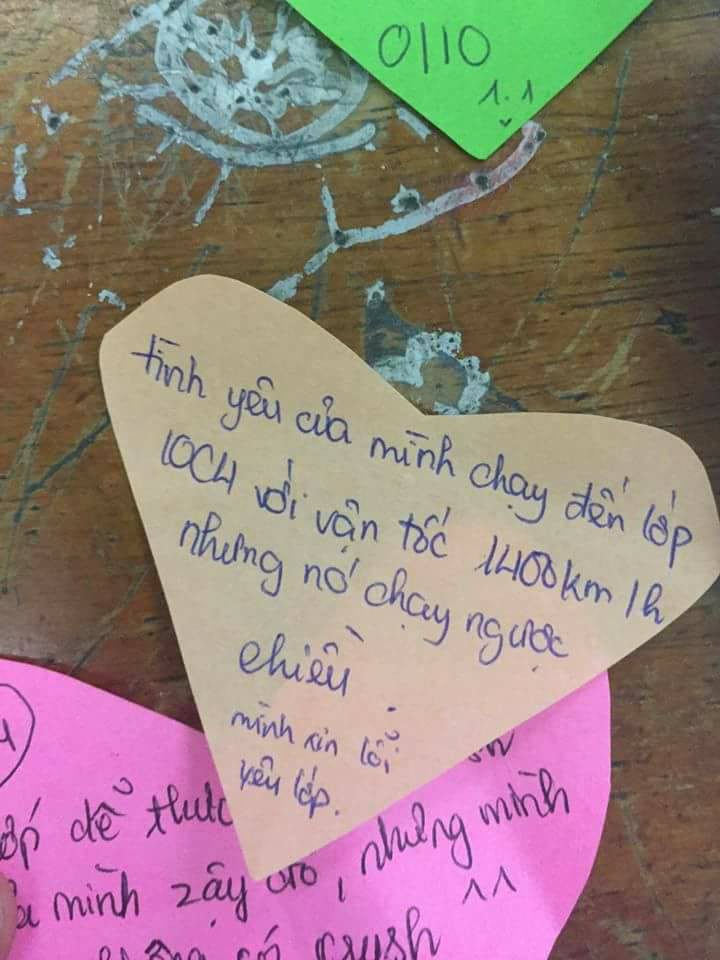 0110
1.1
tình yêu của mình chạy đến lớp
10C4 với vận tốc 1400km/h
nhưng nó chạy ngược
chiều.
mình xin lỗi
yêu lớp.
để thươ
mình zậy cro, nhưng mình
có crush ^^